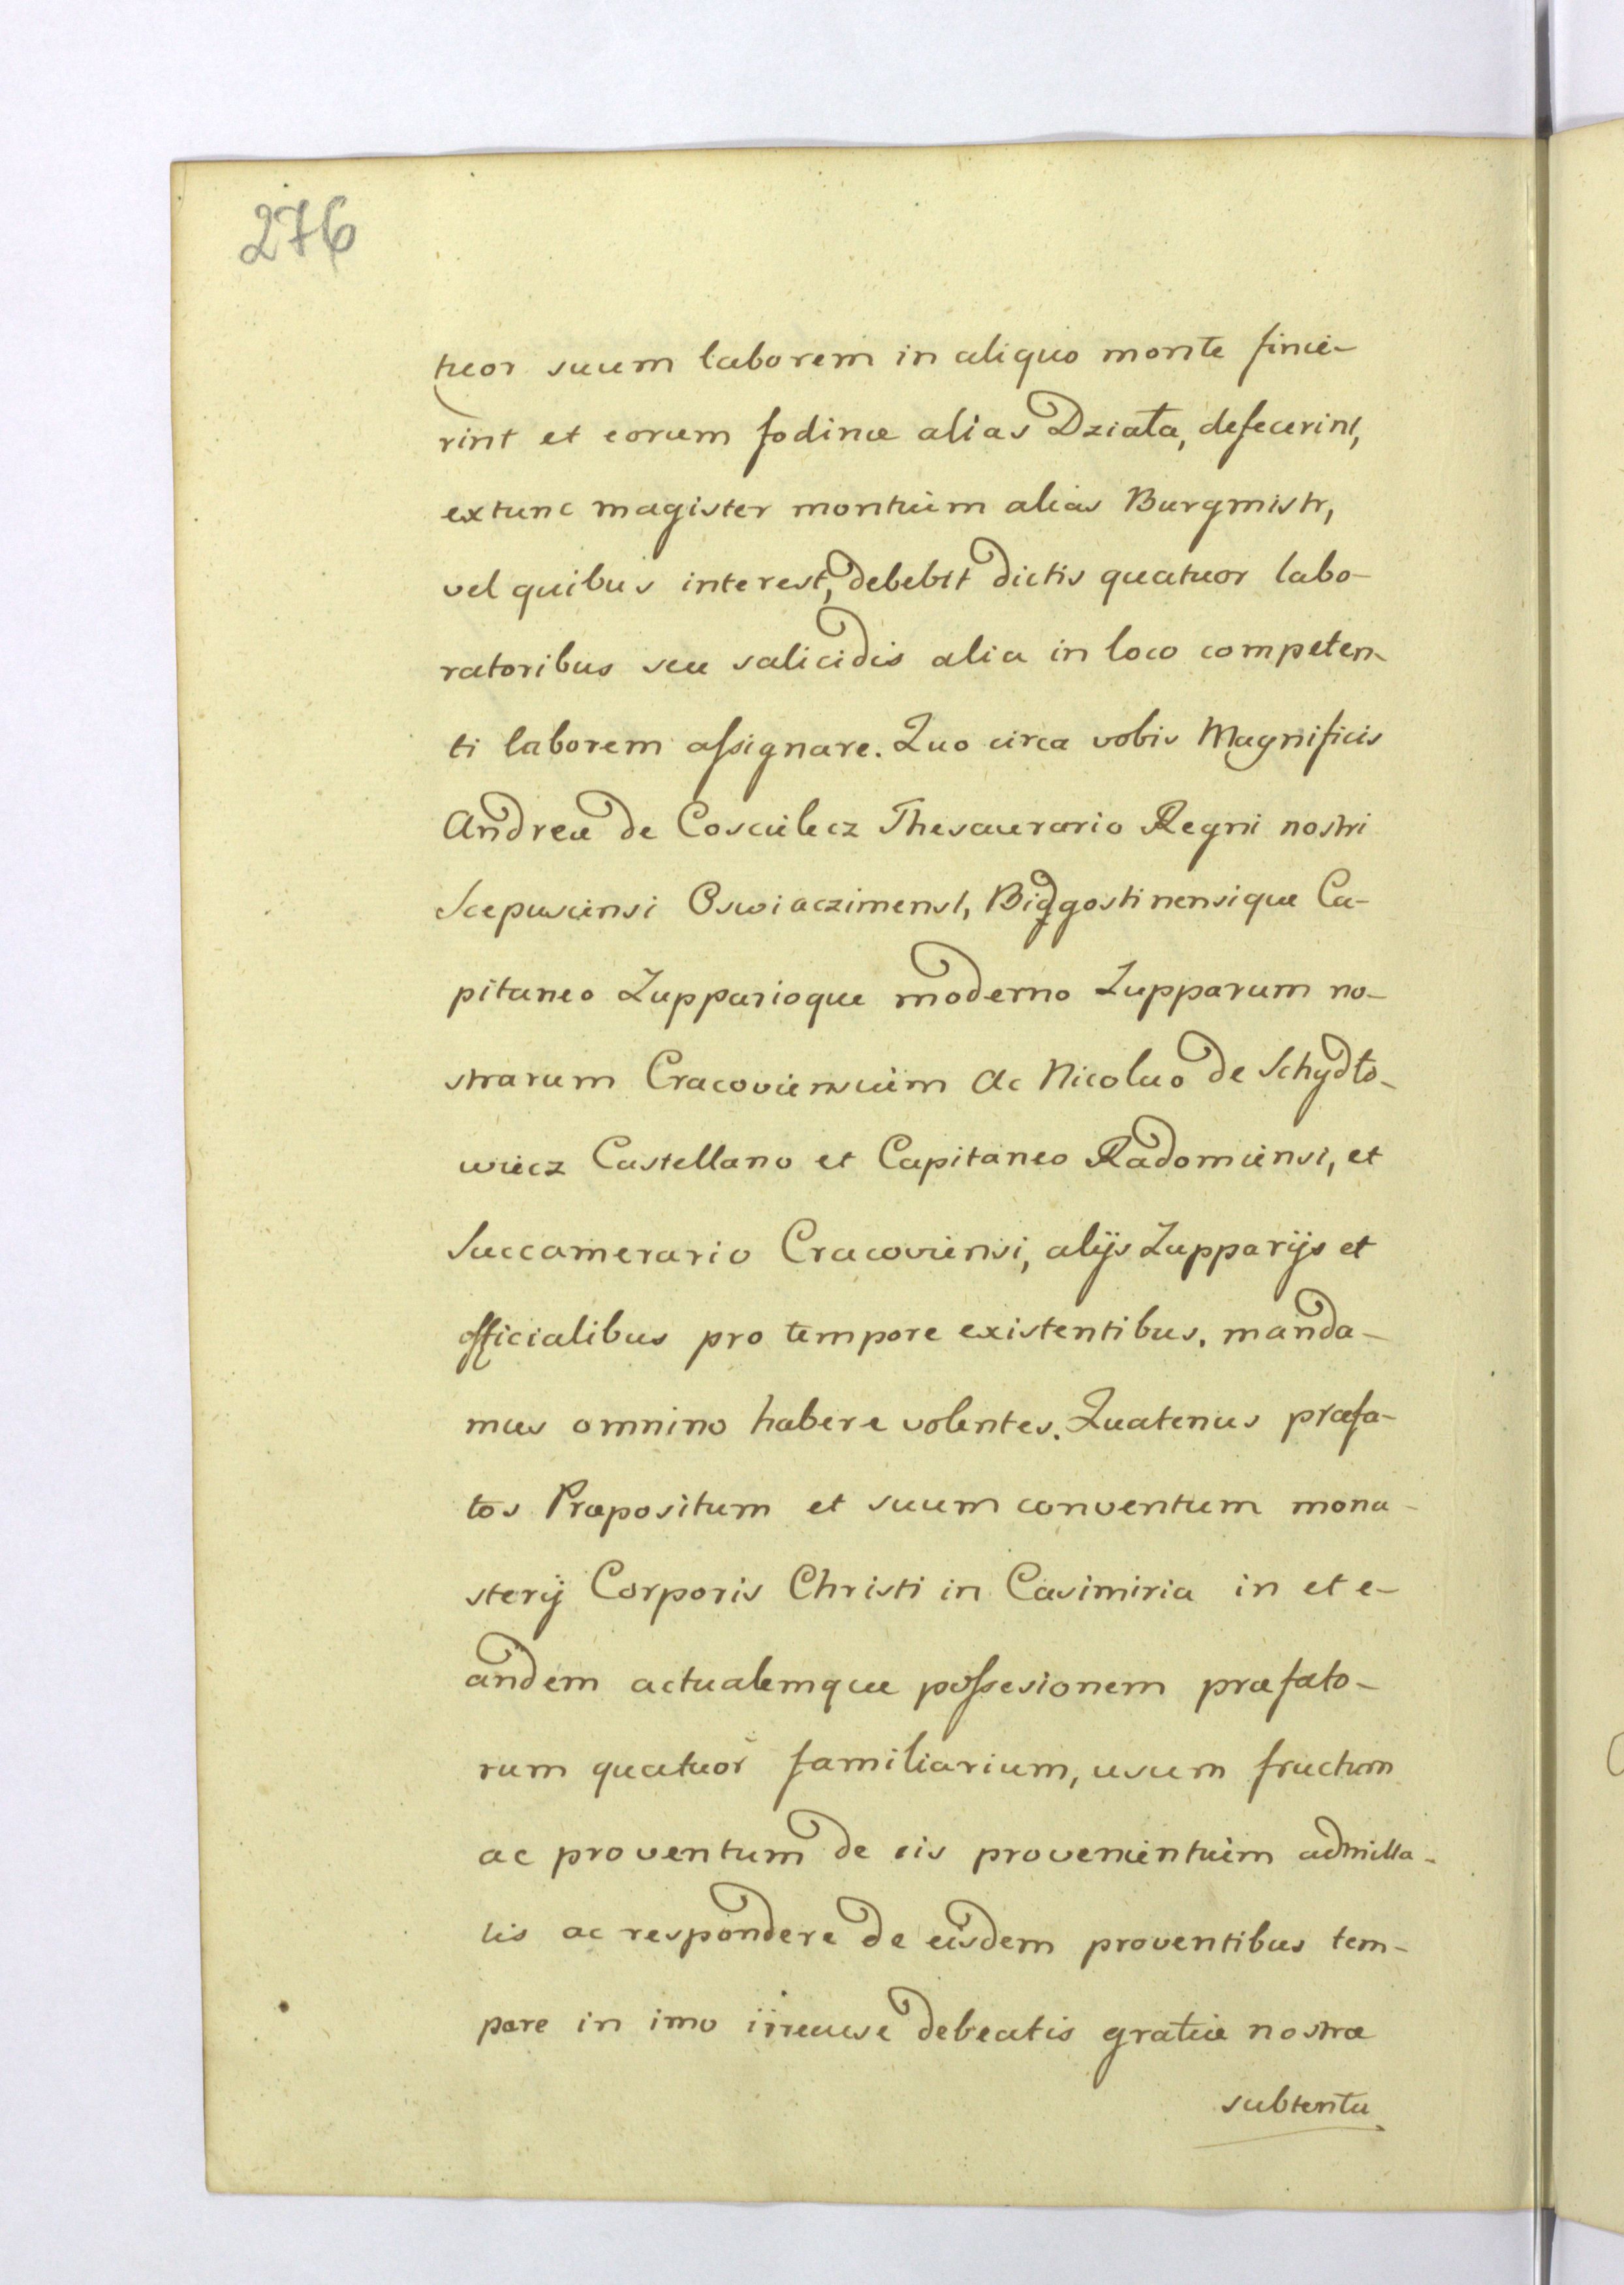 276
tuor suum laborem in aliquo monte finie-
rint et eorum fodinæ alias Działa, defecerint,
extunc magister montium alias Burgmistr,
vel quibus interest, debebit dictis quatuor labo-
ratoribus seu salicidis alia in loco competen-
ti laborem assignare. Quo circa vobis Magnificis
Andreæ de Coscielecz Thesaurario Regni nostri
Scepusiensi Oswiaczimensi, Bidgostinensique Ca-
pitaneo Zupparioque moderno Zupparum no-
strarum Cracoviensium Ac Nicolao de Schydło-
wiecz Castellano et Capitaneo Radomiensi, et
Succamerario Cracoviensi, alijs Zupparijs et
officialibus pro tempore existentibus. manda-
mus omnino habere volentes. Quatenus præfa-
tos Præpositum et suum conventum mona-
sterij Corporis Christi in Casimiria in et e-
andem actualemque possesionem præfato-
rum quatuor familiarium, usum fructum
ac proventum de eis provenientium admitta-
tis ac respondere de eisdem proventibus tem-
pore in imo debeatis gratiæ nostræ
subtentu